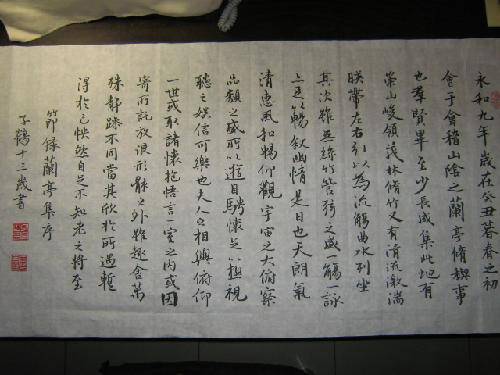 永和九年歲在癸丑暮春之初
會于會稽山陰之蘭亭脩禊事
也羣賢畢至少長咸集此地有
崇山峻領茂林脩竹又有清流激湍
暎帶左右引以為流觴曲水列坐
其次雖無絲竹管弦之盛一觴一詠
亦足以暢敘幽情是日也天朗氣
清惠風和暢仰觀宇宙之大俯察
品類之盛所以遊目騁懷足以極視
聽之娛信可樂也夫人之相與俯仰
一世或取諸懷抱悟言一室之內或因
寄所託放浪形骸之外雖趣舍萬
殊靜躁不同當其欣於所遇暫
得於己怏然自足不知老之將至
節錄蘭亭集序
子鶴十三歲書